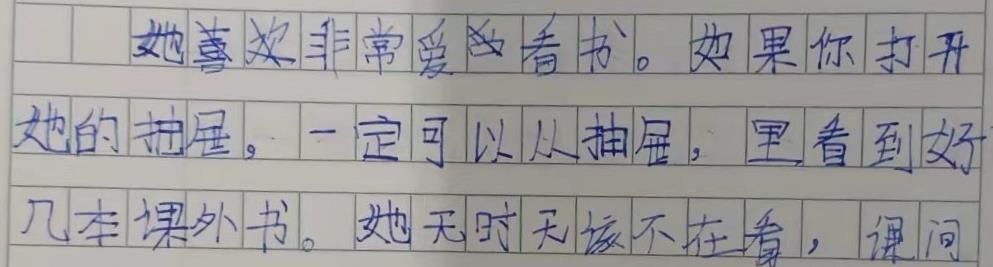 她喜欢非常爱看书。如果你打开
她的抽屉,一定可以从抽屉,里看到好
几本课外书。她无时无该不在看,课间